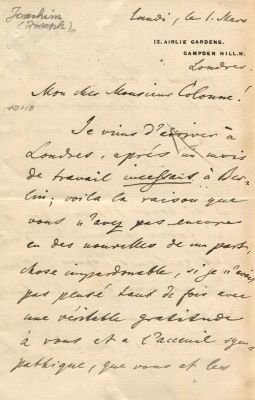 Joachim
(Joseph).
Lundi, le 1. Mars
13, AIRLIE GARDENS,
CAMPDEN HILL, W.
Londres
Mon cher Monsieur Colonne!
Je viens d'arriver à
Londres, après un mois
de travail incessant à Ber-
lin; voilà la raison que
vous n'avez pas encore
eu des nouvelles de ma part,
chose impardonable, si je n'avais
pas pensé tant de fois avec
une véritable gratitude
à vous et a l'accueil sym-
pathique, que vous et les